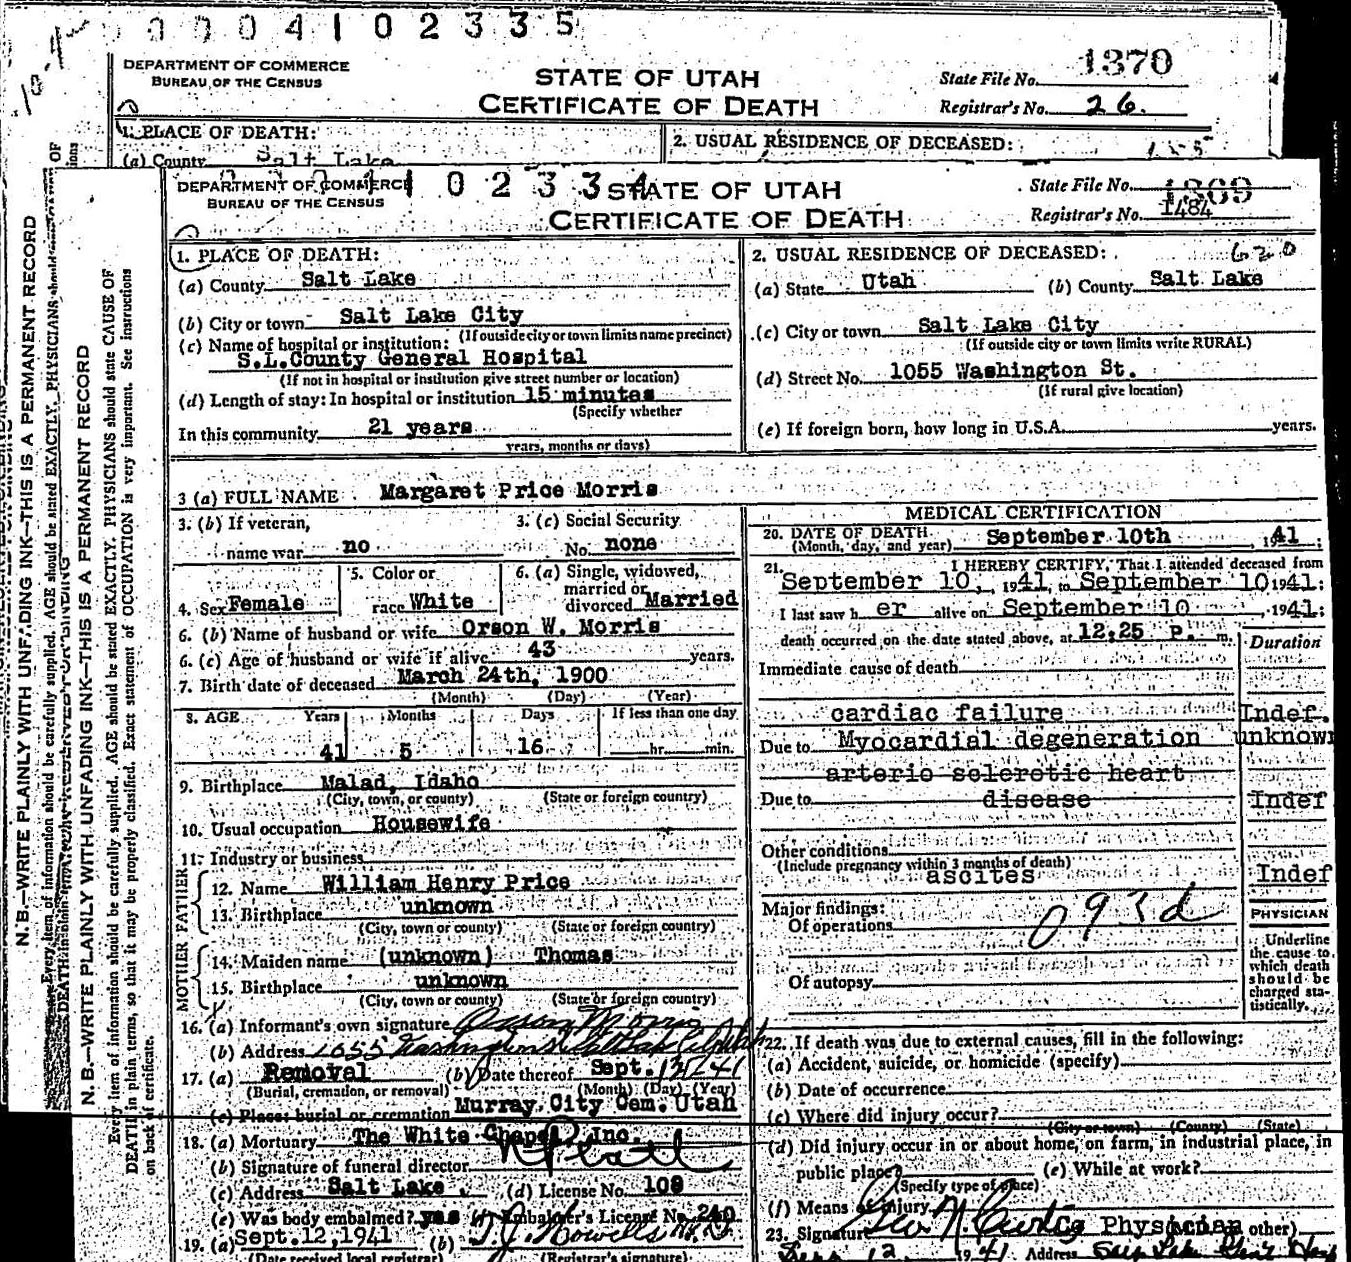 0 0 0 4 1 0 2 3 3 5
DEPARTMENT OF COMMERCE
BUREAU OF THE CENSUS
STATE OF UTAH
CERTIFICATE OF DEATH
State File No. 1370
Registrar's No. 26.
1. PLACE OF DEATH:
(a) County Salt Lake
2. USUAL RESIDENCE OF DECEASED:
DEPARTMENT OF COMMERCE
BUREAU OF THE CENSUS
1 0 2 3 3 4
STATE OF UTAH
CERTIFICATE OF DEATH
State File No. 1369
Registrar's No. 1484
1. PLACE OF DEATH:
(a) County Salt Lake
(b) City or town Salt Lake City
(If outside city or town limits name precinct)
(c) Name of hospital or institution:
S.L. County General Hospital
(If not in hospital or institution give street number or location)
(d) Length of stay: In hospital or institution 15 minutes
(Specify whether
In this community 21 years
years, months or days)
2. USUAL RESIDENCE OF DECEASED: 620
(a) State Utah (b) County Salt Lake
(c) City or town Salt Lake City
(If outside city or town limits write RURAL)
(d) Street No. 1055 Washington St.
(If rural give location)
(e) If foreign born, how long in U.S.A. years.
3 (a) FULL NAME Margaret Price Morris
3. (b) If veteran,
name war no
3. (c) Social Security
No. none
4. Sex Female
5. Color or
race White
6. (a) Single, widowed,
married or
divorced Married
6. (b) Name of husband or wife Orson W. Morris
6. (c) Age of husband or wife if alive 43 years.
7. Birth date of deceased March 24th, 1900
(Month) (Day) (Year)
8. AGE Years Months Days If less than one day
41 5 16 hr. min.
9. Birthplace Malad, Idaho
(City, town, or county) (State or foreign country)
10. Usual occupation Housewife
11. Industry or business
FATHER
12. Name William Henry Price
13. Birthplace unknown
(City, town or county) (State or foreign country)
MOTHER
14. Maiden name (unknown) Thomas
15. Birthplace unknown
(City, town or county) (State or foreign country)
16. (a) Informant's own signature Orson Morris
(b) Address 1055 Washington St Salt Lake City Utah
17. (a) Removal (b) Date thereof Sept. 12/41
(Burial, cremation, or removal) (Month) (Day) (Year)
(c) Place: burial or cremation Murray City Cem. Utah
18. (a) Mortuary The White Chapel, Inc.
(b) Signature of funeral director
(c) Address Salt Lake (d) License No. 108
(e) Was body embalmed? yes Embalmer's License No. 240
19. (a) Sept. 12, 1941 (b) T.J. Howells
(Date received local registrar) (Registrar's signature)
MEDICAL CERTIFICATION
20. DATE OF DEATH
(Month, day, and year) September 10th, 1941
21. I HEREBY CERTIFY, That I attended deceased from
September 10, 1941, to September 10 1941:
I last saw her alive on September 10 1941:
death occurred on the date stated above, at 12:25 P. m.
Duration
Immediate cause of death
cardiac failure Indef.
Due to Myocardial degeneration unknown
arterio sclerotic heart
Due to disease Indef
Other conditions
(Include pregnancy within 3 months of death)
ascites Indef
Major findings:
Of operations
093d
Of autopsy
PHYSICIAN
Underline
the cause to
which death
should be
charged sta-
tistically.
22. If death was due to external causes, fill in the following:
(a) Accident, suicide, or homicide (specify)
(b) Date of occurrence
(c) Where did injury occur?
(City or town) (County) (State)
(d) Did injury occur in or about home, on farm, in industrial place, in
public place? (e) While at work?
(Specify type of place)
(f) Means of injury
23. Signature Geo N Curtis Physician other)
12 1941 Address Salt Lake Gen'l Hosp
N. B.—WRITE PLAINLY WITH UNFADING INK—THIS IS A PERMANENT RECORD
N. B.—WRITE PLAINLY WITH UNFADING INK—THIS IS A PERMANENT RECORD
Every item of information should be carefully supplied. AGE should be stated EXACTLY. PHYSICIANS should state CAUSE OF
DEATH in plain terms, so that it may be properly classified. Exact statement of OCCUPATION is very important. See instructions
on back of certificate.